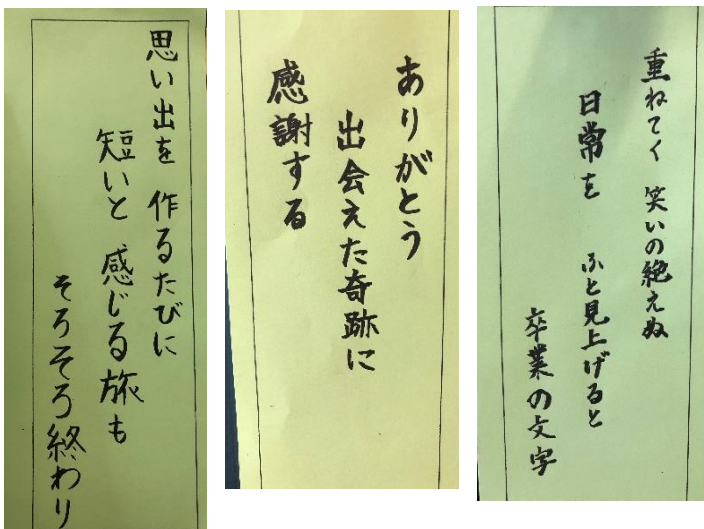 思い出を 作るたびに
短いと 感じる旅も
そろそろ終わり
ありがとう
出会えた奇跡に
感謝する
重ねてく 笑いの絶えぬ
日常を ふと見上げると
卒業の文字